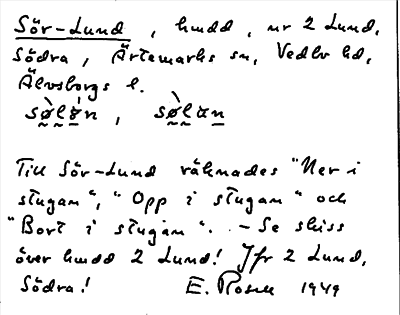 Sör-Lund, hmdd, nr 2 Lund,
Södra, Ärtemarks sn, Vedbo hd,
Älvsborgs l.
sø̀lan, sø̀lan
Till Sör-Lund räknades "Ner i
stugan", "Opp i stugan" och
"Bort i stugan". – Se skiss
över hmdd 2 Lund! Jfr 2 Lund,
Södra! E. Rosell 1949